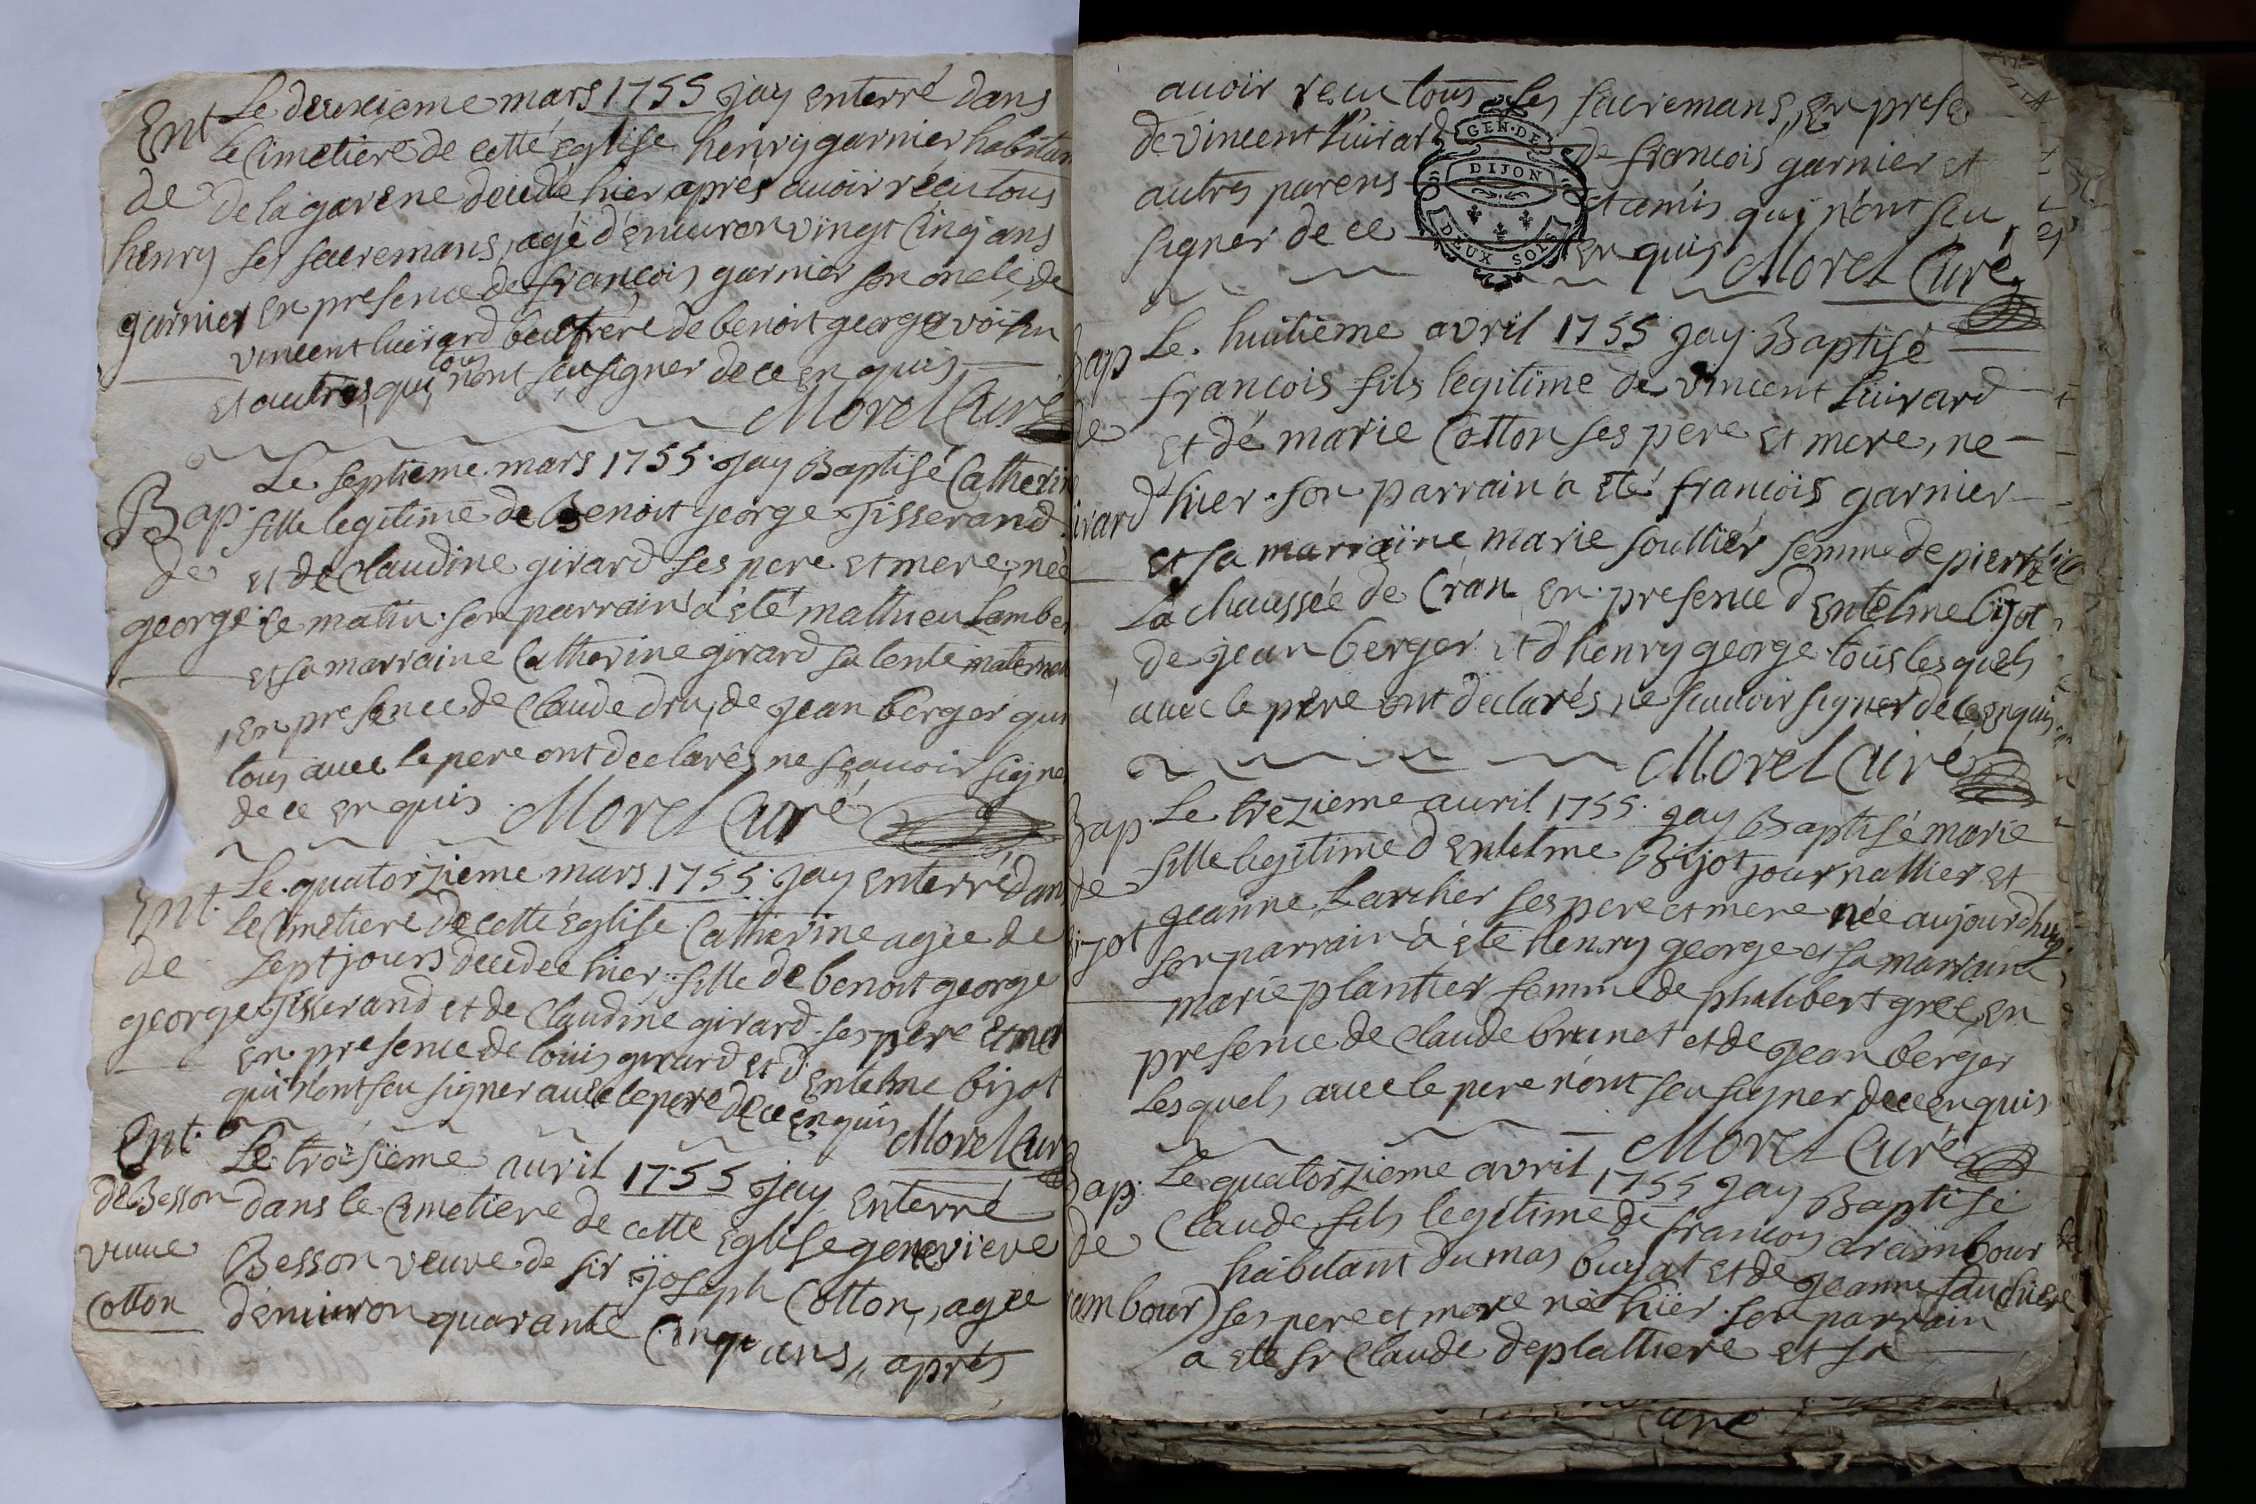 Ent
de
henry
garnier
Le deuxieme mars 1755 jay enterré dans
le Cimetiere de cette Eglise henry garnier habitan
de la garene decede hier apres auoir recu tous
ses sacremans, agé d'enuiron vingt Cinq ans
en presence de françois garnier son oncle, de
vincent luirard beaufrere de benoit george voisin
et autres, qui tous n'ont scu signer de ce enquis
Morel Curé
Bap.
de
george
Le septieme mars 1755 jay Baptisé Catherine
fille legitime de Benoit george Tisserand
et de Claudine girard ses pere et mere, née
ce matin. son parrain a été mathieu Lamber
et sa marraine Catherine girard sa tente maternel
en presence de Claude dru, de jean berger qui
tous auec le pere ont declarés ne scauoir signe
de ce enquis. Morel Curé
Ent.
de
george
Le quatorzieme mars 1755 jay enterré dans
le Cimetiere de cette Eglise Catherine agée de
sept jours decedee hier, fille de benoit george
Tisserand et de Claudine girard ses pere et mer
en presence de louis girard et d'entelme bijot
qui n'ont scu signer auec le pere de ce enquis
Morel Cur
Ent.
de Besson
veuue
Cotton
Le troisieme auril 1755 jay enterré
dans le Cimetiere de cette Eglise genevieve
Besson veuve de sir joseph Cotton, agée
d'enuiron quarante Cinq ans, après
auoir recu tous les sacremans, en prese
de vincent luirard de francois garnier et
autres parens et amis qui n'ont scu
signer de ce enquis
Morel Curé
GEN. DE
DIJON
DEUX SOLS
Bap
de
irard
Le huitieme avril 1755 jay Baptisé
francois fils legitime de vincent luirard
et de marie Cotton ses pere et mere, ne
hier. son parrain a été francois garnier
et sa marraine marie soullier femme de pierre
La chaussée de Cran en presence d'entelme bijot
de jean berger et d'henry george tous lesquels
auec le pere ont declarés ne scauoir signer de ce enquis
Morel Curé
Bap
de
bijot
Le trezieme auril 1755 jay Baptisé marie
fille legitime d'entelme Bijot journallier et
jeanne Larcher ses pere et mere née aujourdhuy
son parrain a été henry george et sa marraine
marie plantier femme de philibert gree, en
presence de Claude brunet et de jean berger
Lesquels auec le pere n'ont scu signer de ce enquis
Morel Curé
Bap.
de
ambour
Le quatorzieme avril 1755 jay Baptisé
Claude fils legitime de francois arambour
habitant du mas buyat et de jeanne fauchere
ses pere et mere né hier. son parrain
a été sr Claude deplattiere et sa
Curé